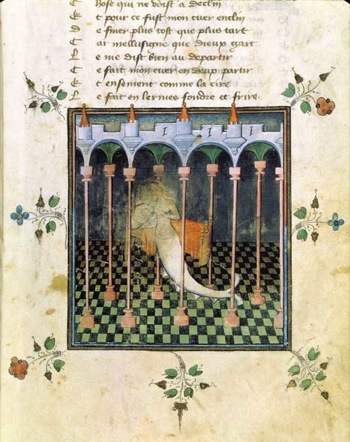 C hose qui ne voist a declin
E t pour ce fust mon cuer enclin
D e finer plus tost que plus tart
C ar mellusigne que dieux gart
L e me dist bien au departir
C e fait mon cuer en deux partir
E t ensement comme la cire
L e fait en lermes fondre et frire